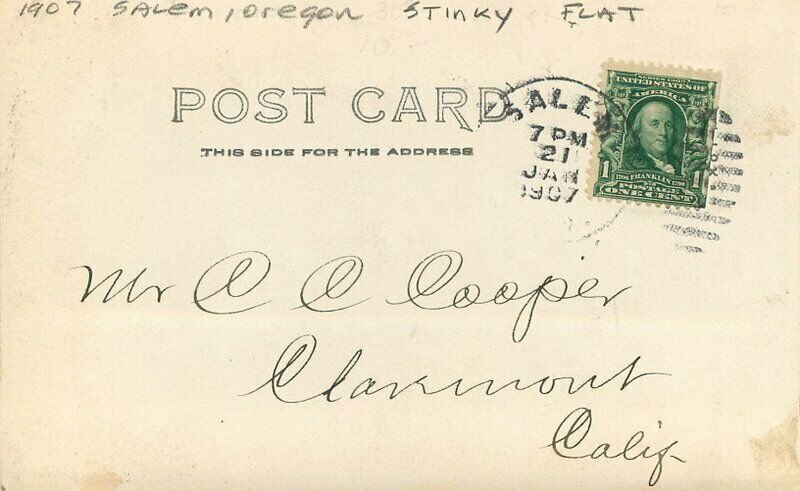 1907 Salem, Oregon STINKY FLAT
POST CARD
THIS SIDE FOR THE ADDRESS
SALEM
7 PM
21
JAN
1907
SERIES 1902
UNITED STATES OF
AMERICA
1706 FRANKLIN 1790
1 POSTAGE 1
ONE CENT
Mr C C Cooper
Claremont
Calif